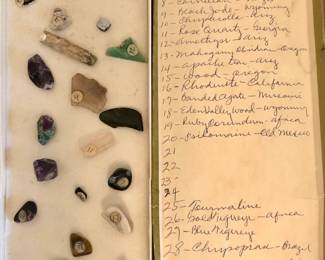 9 - Beach Jade - Wyoming
10 - Chrysacolla - Ariz
11 - Rose Quartz - Georgia
12 - Amethyst - Ariz
13 - Mahogany Obsidian - Oregon
14 - Apache tear - Ariz
15 - Wood - Oregon
16 - Rhodonite - California
17 - Banded Agate - Missouri
18 - Eden Valley Wood - Wyoming
19 - Ruby Corundum - Africa
20 - Psilomaine - Old Mexico
21
22
23 -
24
25 - Tourmaline
26 - Gold Tigereye - Africa
27 - Blue Tigereye
28 - Chrysoprase - Brazil